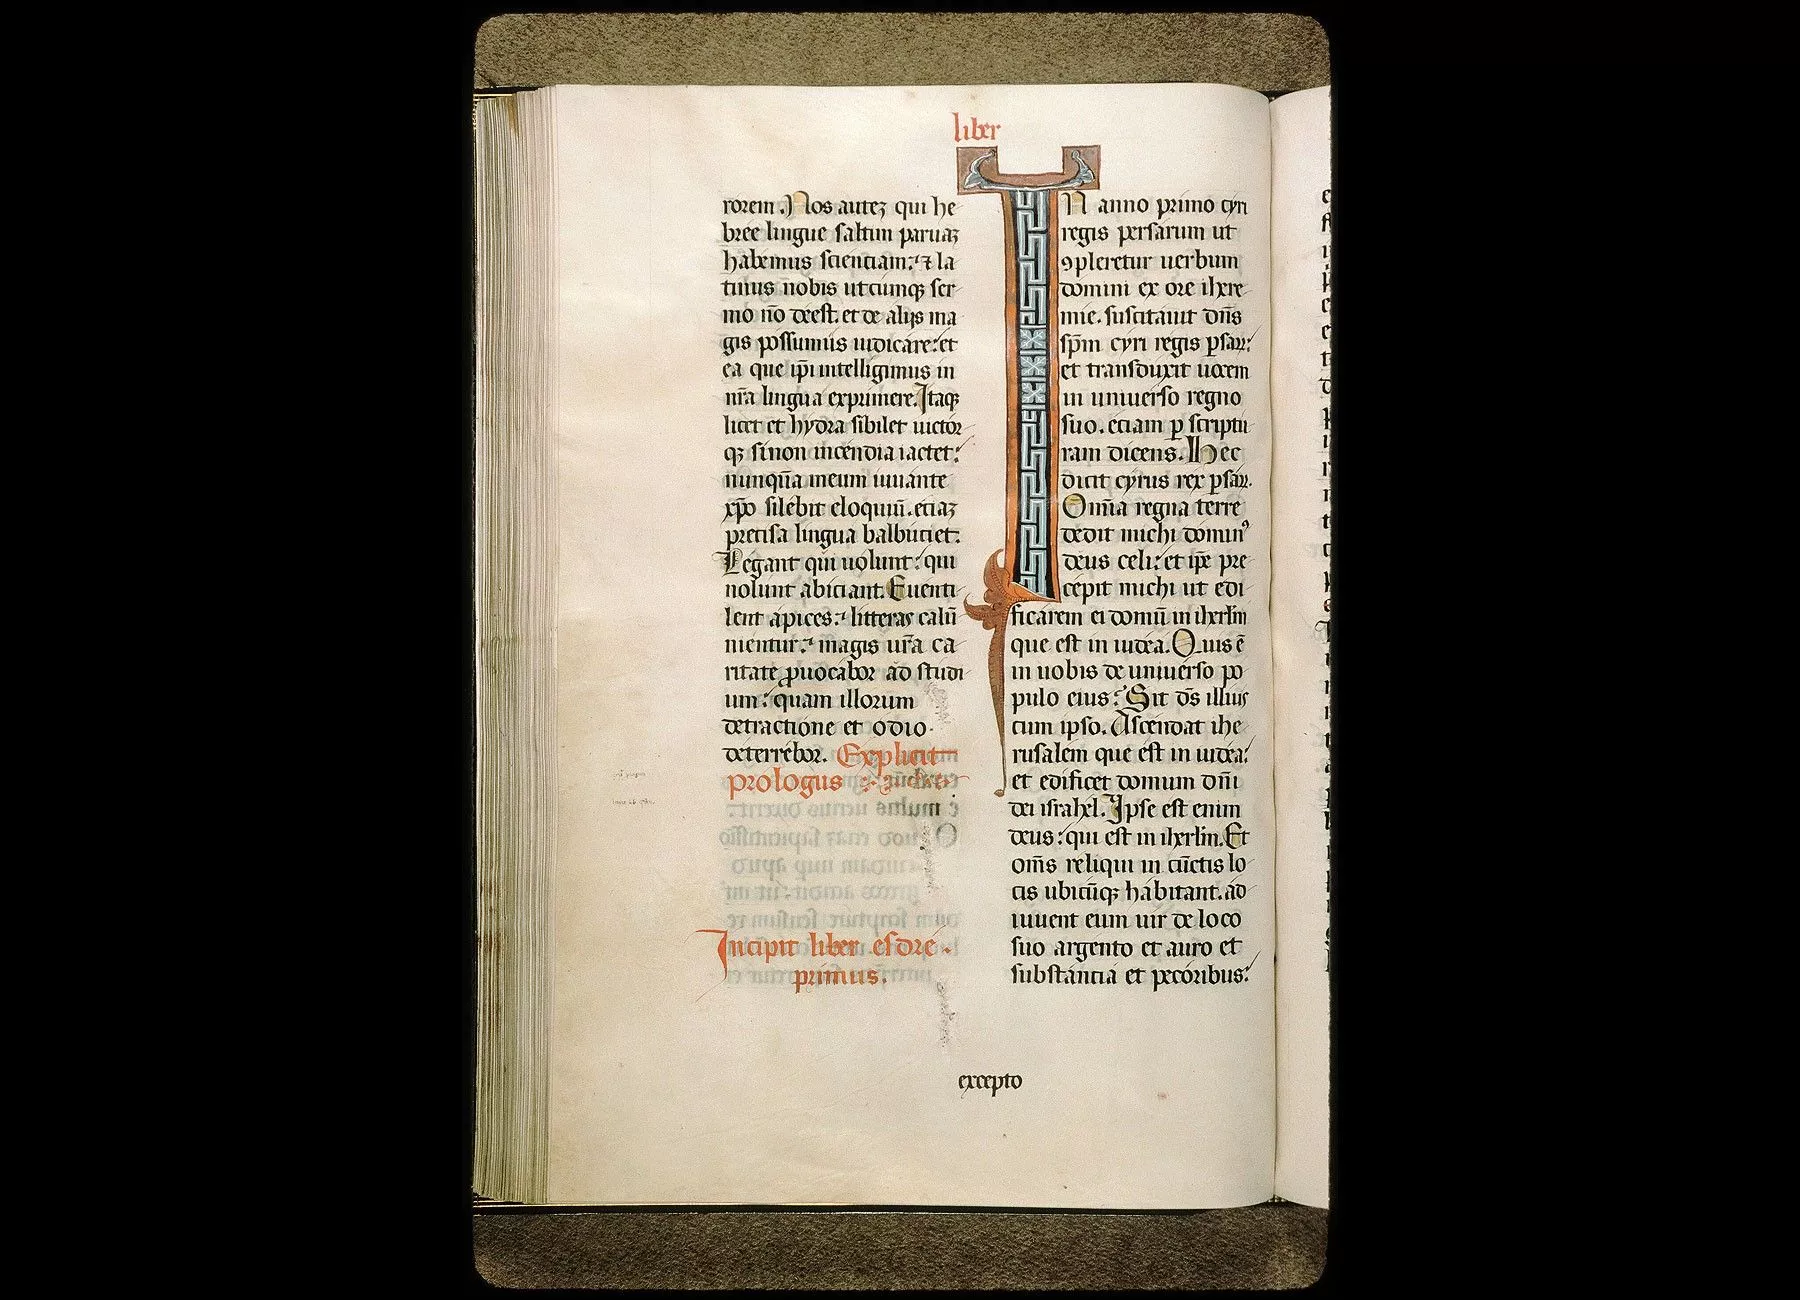 liber
rorem. Nos autez qui he
bree lingue saltim paruaz
habemus scienciam: ⁊ la
tinus nobis utcunqꝫ ser
mo nō deest. et de alijs ma
gis possumus iudicare: et
ea que ip̄i intelligimus in
nr̄a lingua exprimere. Itaqꝫ
licet et hydra sibilet uictor
qꝫ sinon incendia iactet:
nunqūa meum uiuante
xp̄o silebit eloquiū. eciaz
precisa lingua balbuciet.
Legant qui uolunt: qui
nolunt abiciant. Euenti
lent apices: ⁊ litteras calū
nientur: ⁊ magis ur̄a ca
ritate prouocabor ad studi
um: quam illorum
detractione et odio
deterrebor. Explicit
prologus
Incipit liber esdre
primus.
IN anno primo cyri
regis persarum ut
ꝯpleretur uerbum
domini ex ore ihere
mie. suscitauit dn̄s
sp̄m cyri regis ꝑsaꝝ:
et transduxit uocem
in uniuerso regno
suo. eciam ꝑ scriptu
ram dicens. Hec
dicit cyrus rex ꝑsaꝝ.
Omīa regna terre
dedit michi dominꝰ
deus celi: et ip̄e pre
cepit michi ut edi
ficarem ei domū in ihrlm̄
que est in iudea. Quis ē
in uobis de uniuerso po
pulo eius: Sit ds̄ illius
cum ipso. Ascendat ihe
rusalem que est in iudea:
et edificet domum dn̄i
dei israhel. Ipse est enim
deus: qui est in ihrlm̄. Et
om̄s reliqui in cūctis lo
cis ubicūqꝫ habitant. ad
iuuent eum uiri de loco
suo argento et auro et
substancia et pecoribus:
excepto